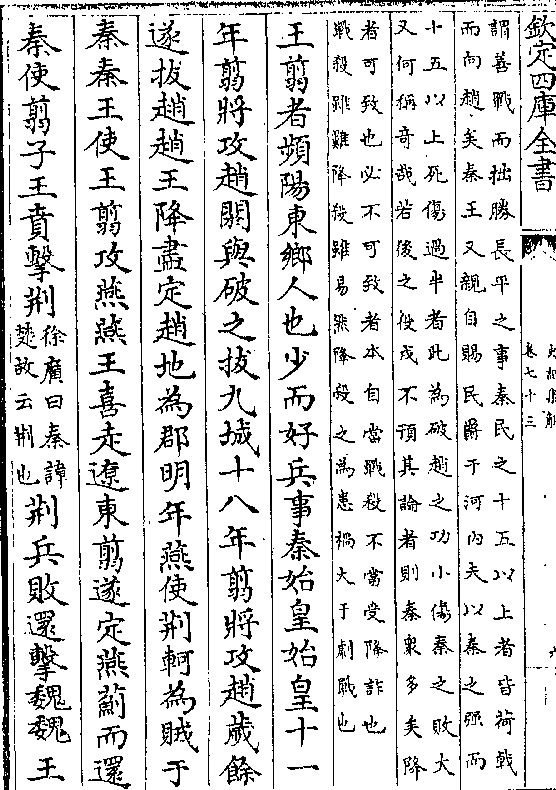 欽定四庫全書
史記集解
卷七十三
六
謂善戰而拙勝長平之事秦民之十五以上者皆荷戟
而向趙矣秦王又親自賜民爵于河内夫以秦之强而
十五以上死傷過半者此為破趙之功小傷秦之敗大
又何稱奇哉若後之役戍不預其論者則秦衆多矣降
者可致也必不可致者本自當戰殺不當受降詐也
戰殺雖難降殺雖易然降殺之為患禍大于劇戰也
王翦者頻陽東鄉人也少而好兵事秦始皇始皇十一
年翦將攻趙閼與破之拔九城十八年翦將攻趙歲餘
遂拔趙趙王降盡定趙地為郡明年燕使荆軻為賊于
秦秦王使王翦攻燕燕王喜走遼東翦遂定燕薊而還
秦使翦子王賁擊荆徐廣曰秦諱楚故云荆也荆兵敗還擊魏魏王